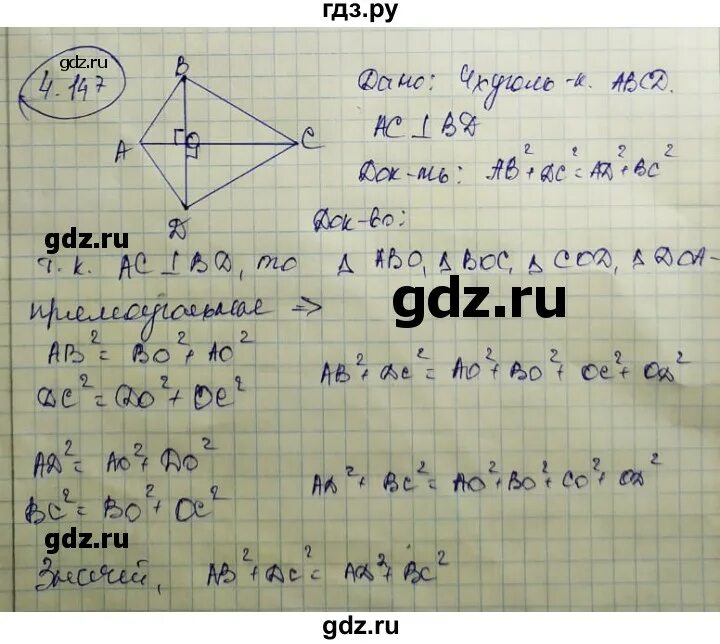 гдз.ру
gdz.ru
4.147
B
A
O
C
D
Дано: 4хуголь-к. ABCD.
AC ⊥ BD
Док-ть: AB² + DC² = AD² + BC²
Док-во:
gdz.ru
Т.к. AC ⊥ BD, то Δ ABO, Δ BOC, Δ COD, Δ DOA-
прямоугольные ⇒
gdz.ru
AB² = BO² + AO²
DC² = DO² + OC²
AB² + DC² = AO² + BO² + OC² + OD²
AD² = AO² + DO²
BC² = BO² + OC²
AD² + BC² = AO² + BO² + CO² + OD²
gdz.ru
gdz.ru
Значит, AB² + DC² = AD² + BC²
gdz.ru
gdz.ru